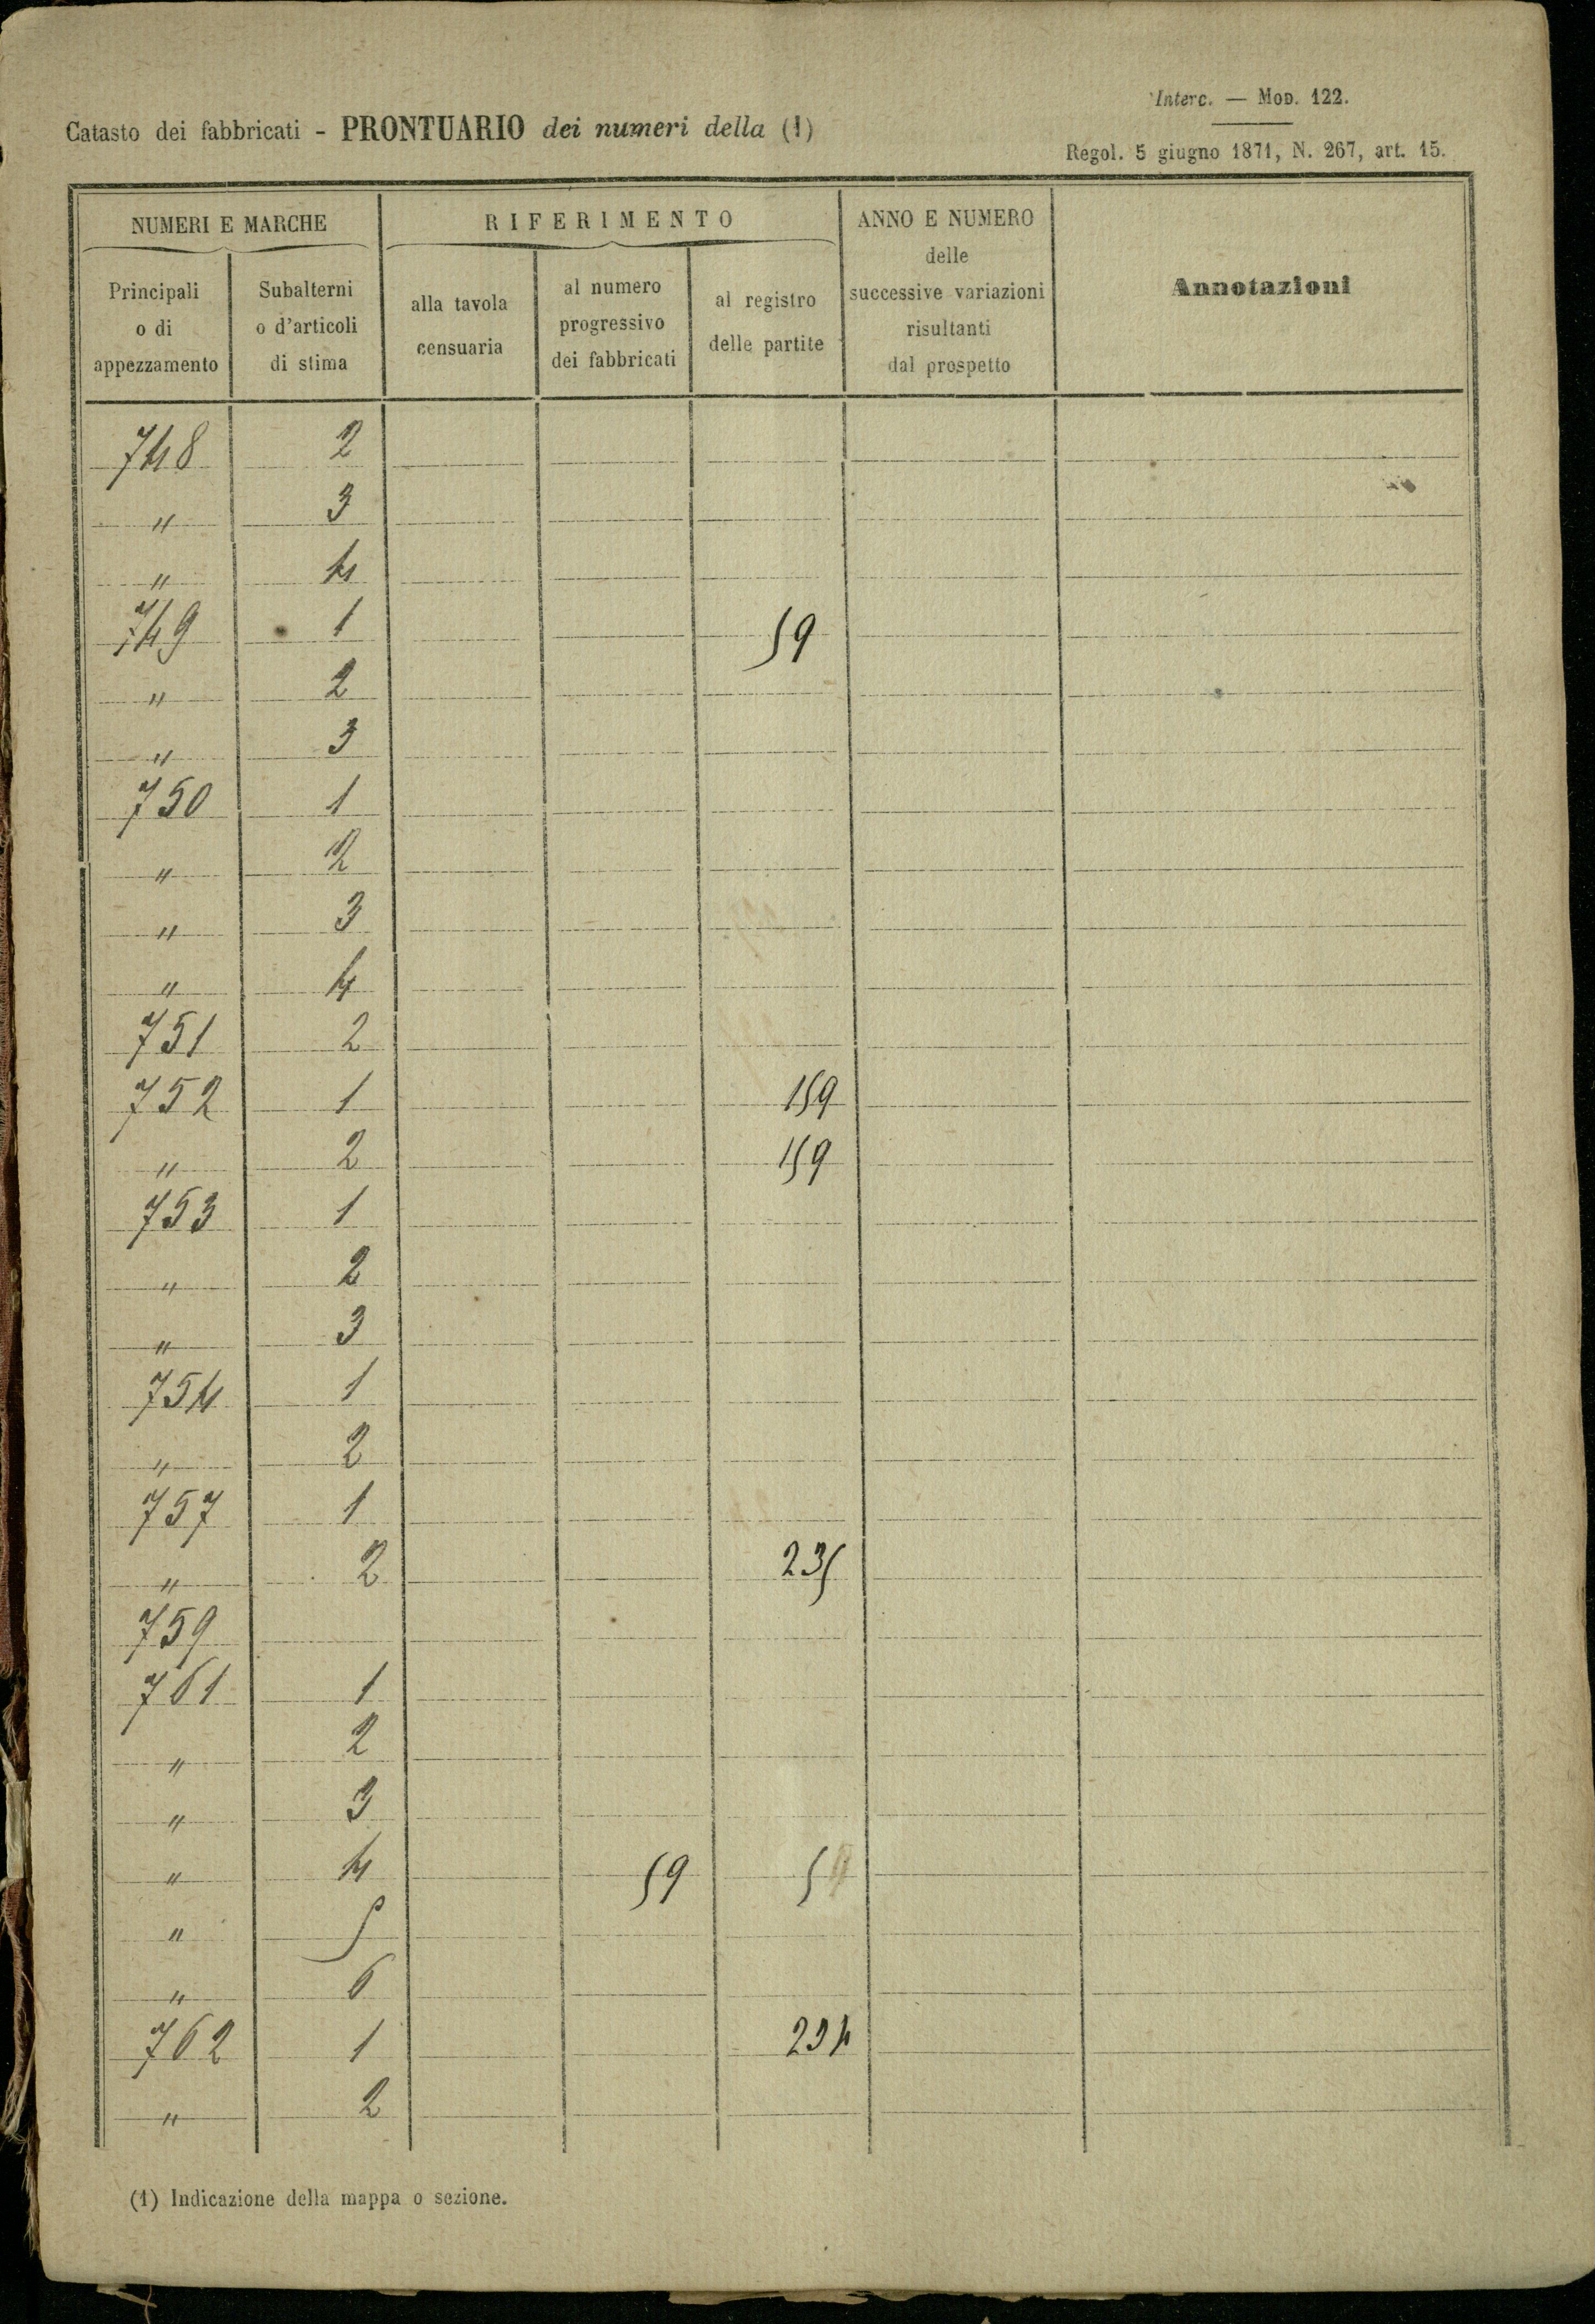 Interc. — MOD. 122.
Catasto dei fabbricati - PRONTUARIO dei numeri della (1)
Regol. 5 giugno 1871, N. 267, art. 15.
NUMERI E MARCHE
RIFERIMENTO
ANNO E NUMERO
delle
successive variazioni
risultanti
dal prospetto
Annotazioni
Principali
o di
appezzamento
Subalterni
o d'articoli
di stima
alla tavola
censuaria
al numero
progressivo
dei fabbricati
al registro
delle partite
748 2
" 3
" 4
749 1 59
" 2
" 3
750 1
" 2
" 3
" 4
751 2
752 1 159
" 2 159
753 1
" 2
" 3
754 1
" 2
757 1
" 2 235
759
761 1
" 2
" 3
" 4 59 5
" 5
" 6
762 1 234
" 2
(1) Indicazione della mappa o sezione.